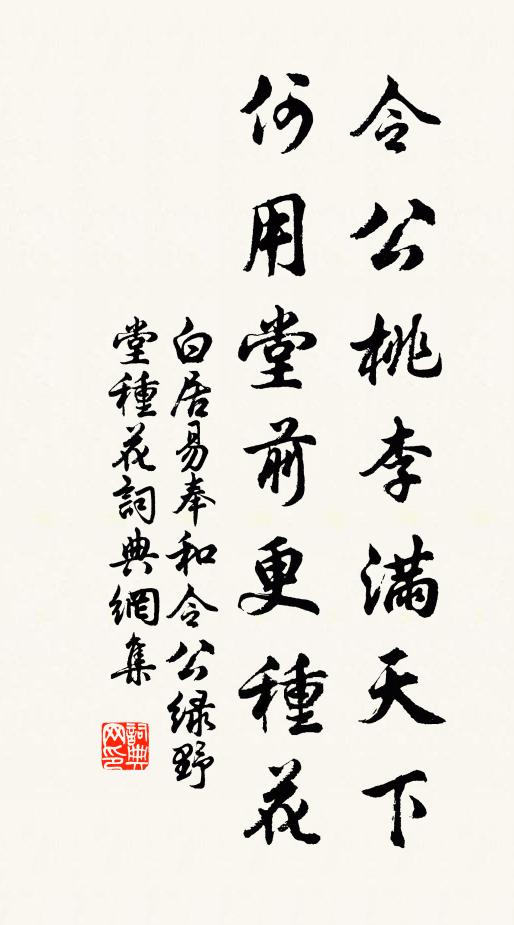 令公桃李滿天下
何用堂前更種花
白居易奉和令公绿野
堂種花詞典網集
詞典
网印